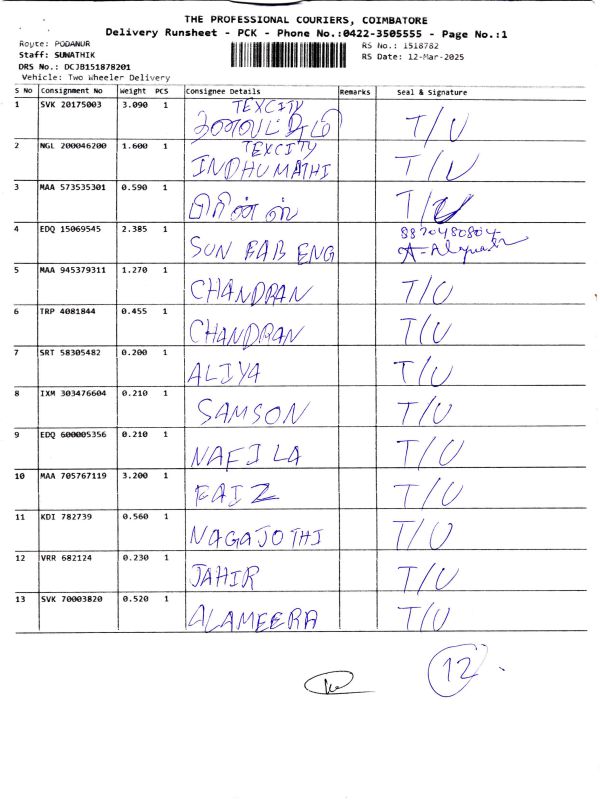 THE PROFESSIONAL COURIERS, COIMBATORE
Delivery Runsheet - PCK - Phone No.:0422-3505555 - Page No.:1
Route: PODANUR
RS No.: 1518782
Staff: SUWATHIK
RS Date: 12-Mar-2025
DRS No.: DCJB151878201
Vehicle: Two Wheeler Delivery
S No Consignment No Weight PCS Consignee Details Remarks Seal & Signature
TEXCITY
1 SVK 20175003 3.090 1 T/U
TEXCITY
2 NGL 200046200 1.600 1 INDHUMATHI T/U
3 MAA 573535301 0.590 1 பிரின்ஸ் T/U
4 EDQ 15069545 2.385 1 SUN FAB ENG 8870480804
5 MAA 945379311 1.270 1 CHANDRAN T/U
6 TRP 4081844 0.455 1 CHANDRAN T/U
7 SRT 58305482 0.200 1 ALIYA T/U
8 IXM 303476604 0.210 1 SAMSON T/U
9 EDQ 600005356 0.210 1 NAFILA T/U
10 MAA 705767119 3.200 1 FAIZ T/U
11 KDI 782739 0.560 1 NAGAJOTHI T/U
12 VRR 682124 0.230 1 JAHIR T/U
13 SVK 70003820 0.520 1 ALAMEERA T/U
12